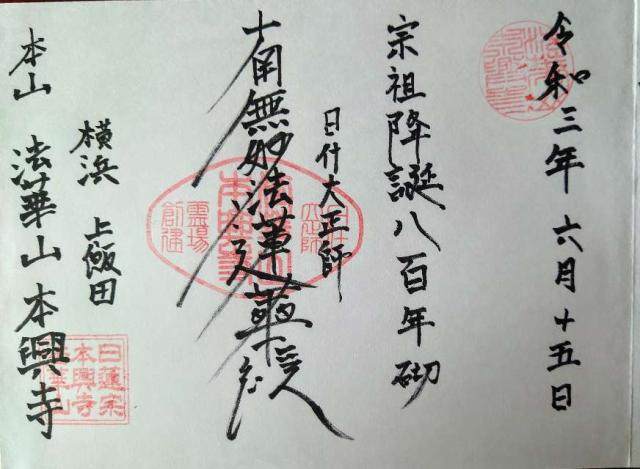 令和三年六月十五日
宗祖降誕八百年砌
日什大正師
南無妙法蓮華経
霊場
創建
横浜 上飯田
本山 法華山本興寺
日蓮宗
本興寺